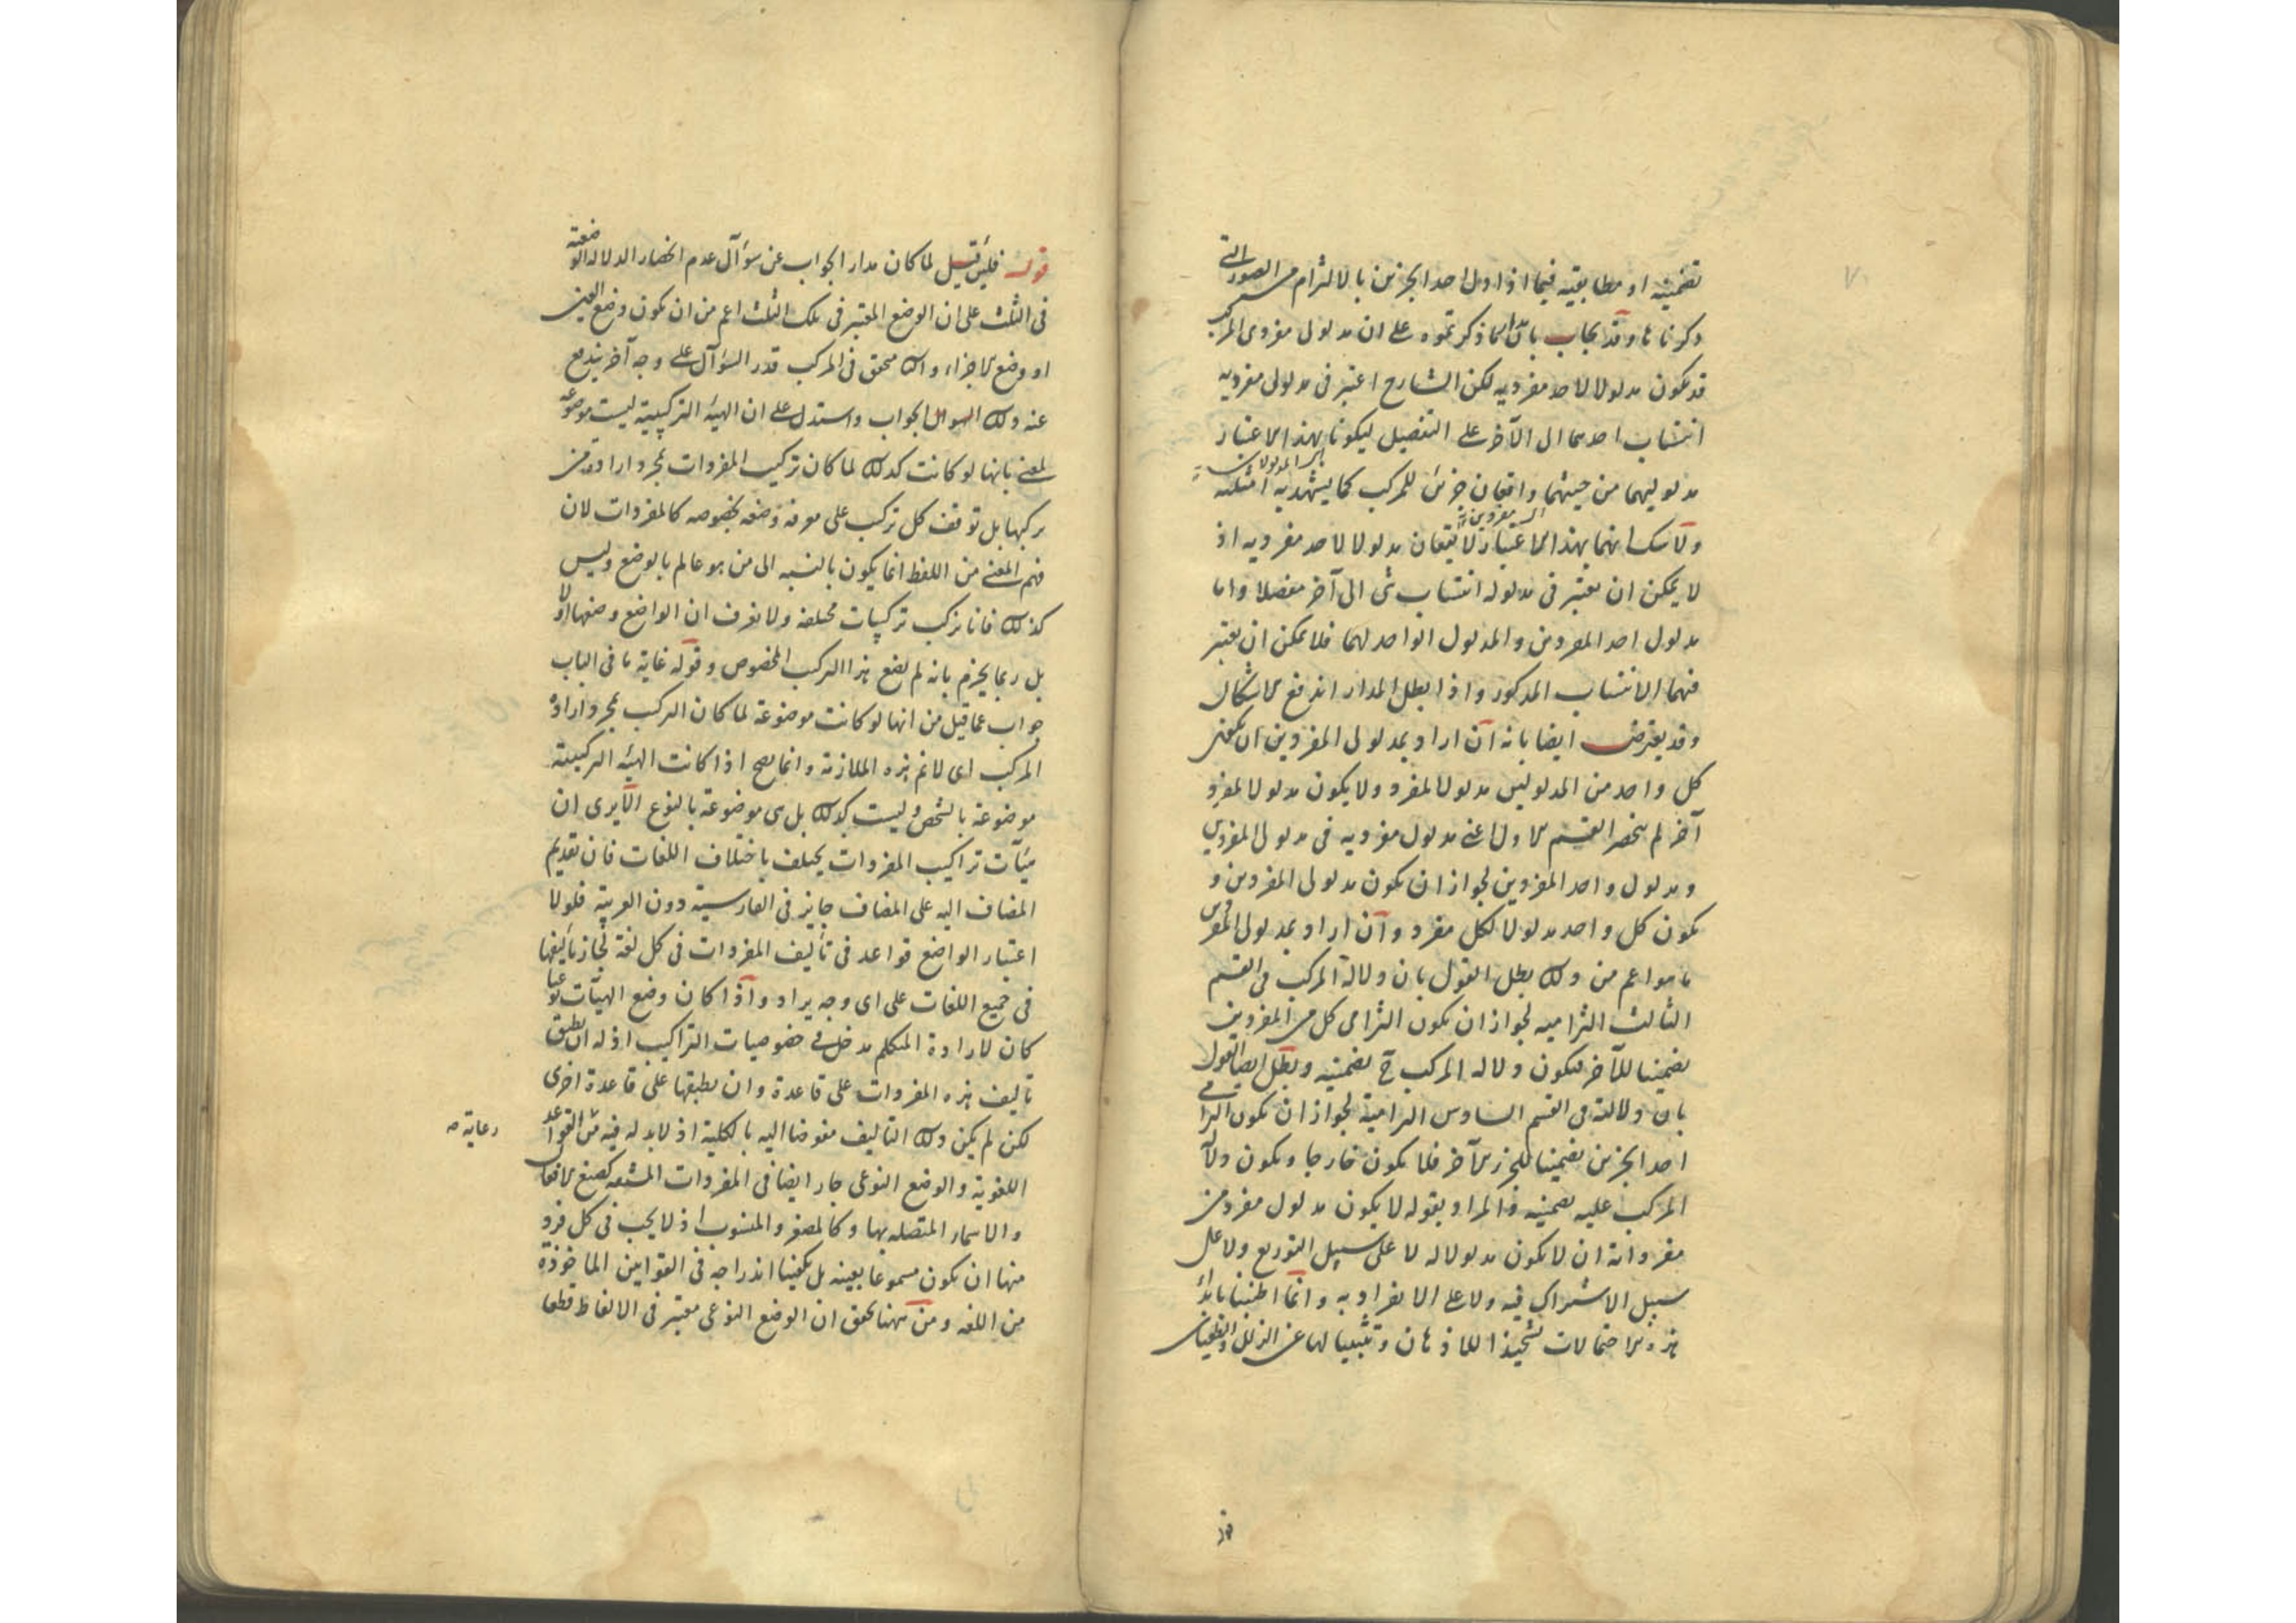 تضمنية او مطابقية فيما اذا دل احد الجزئين بالالتزام من الصور التى
ذكرناها وقد يجاب بان ما ذكرتموه على ان مدلولى مفردى المركب
قد يكون مدلولا لاحد مفرديه لكن الشارح اعتبر فى مدلولى مفرديه
انتساب احدهما الى الآخر على التفصيل ليكونا بهذا الاعتبار
مدلوليهما من حيث هما واقعان جزئى المركب كما يشهد به امثلته
ولا شك انهما بهذا الاعتبار لا يقعان مدلولا لاحد مفرديه اذ
لا يمكن ان يعتبر فى مدلوله انتساب شى الى آخر مفصلا واما
مدلول احد المفردين والمدلول الواحد لهما فلا يمكن ان يعتبر
فيهما الانتساب المذكور واذا بطل المدار اندفع الاشكال
وقد يعترض ايضا بانه ان اراد بمدلولى المفردين ان يكون
كل واحد من المدلولين مدلولا لمفرد ولا يكون مدلولا لمفرد
آخر لم ينحصر القسم الاول اعنى مدلول مفرديه فى مدلولى المفردين
ومدلول واحد المفردين لجواز ان يكون مدلولى المفردين و
يكون كل واحد مدلولا لكل مفرد وان اراد بمدلولى المفردين
ما هو اعم من ذلك بطل القول بان دلالة المركب فى القسم
الثالث التزامية لجواز ان يكون التزامى كل من المفردين
تضمنيا للآخر فيكون دلالة المركب ح تضمنية وبطل ايضا القول
بان دلالته فى القسم السادس التزامية لجواز ان يكون التزامى
احد الجزئين تضمنيا للجزء الآخر فلا يكون خارجا ويكون دلالة
المركب عليه تضمنية والمراد بقوله لا يكون مدلول مفرد من
مفرداته ان لا يكون مدلولا له لا على سبيل التوزيع ولا على
سبيل الاشتراك فيه ولا على الانفراد به وانما اطنبنا بايراد
هذه الاحتمالات تشحيذا للاذهان وتثبيتا لها عن الزلل والطغيان
قوله فلئن قيل لما كان مدار الجواب عن سؤال عدم انحصار الدلالة الوضعية
فى الثلث على ان الوضع المعتبر فى تلك الثلث اعم من ان يكون وضع العين
او وضع الاجزاء وذلك متحقق فى المركب قدر السؤال على وجه آخر يندفع
عنه ذلك الجواب واستدل على ان الهيئة التركيبية ليست موضوعة
لمعنى بانها لو كانت كذلك لما كان تركيب المفردات بمجرد ارادة من
يركبها بل توقف كل تركيب على معرفة وضعه بخصوصه كالمفردات لان
فهم المعنى من اللفظ انما يكون بالنسبة الى من هو عالم بالوضع وليس
كذلك فانا نركب تركيبات مختلفة ولا نعرف ان الواضع وضعها اولا
بل ربما يجزم بانه لم يضع هذا المركب المخصوص وقوله غاية ما فى الباب
جواب عما قيل من انها لو كانت موضوعة لما كان التركيب بمجرد ارادة
المركب اى لا نم هذه الملازمة وانما يصح اذا كانت الهيئة التركيبية
موضوعة بالشخص وليست كذلك بل هى موضوعة بالنوع الا يرى ان
هيئات تراكيب المفردات يختلف باختلاف اللغات فان تقديم
المضاف اليه على المضاف جايز فى الفارسية دون العربية فلولا
اعتبار الواضع قواعد فى تأليف المفردات فى كل لغة لجاز تأليفها
فى جميع اللغات على اى وجه يراد واذا كان وضع الهيئات نوعيا
كان لارادة المتكلم مدخل فى خصوصيات التراكيب اذ له ان يطبق
تاليف هذه المفردات على قاعدة وان يطبقها على قاعدة اخرى
لكن لم يكن ذلك التاليف مفوضا اليه بالكلية اذ لا بد له فيه من القواعد
رعاية صح
اللغوية والوضع النوعى جار ايضا فى المفردات المشتقة كصيغ الافعال
والاسماء المتصلة بها وكالمصغر والمنسوب اذ لا يجب فى كل فرد
منها ان يكون مسموعا بعينه بل يكفينا اندراجه فى القوانين الماخوذة
من اللغة ومن ههنا تحقق ان الوضع النوعى معتبر فى الالفاظ قطعا